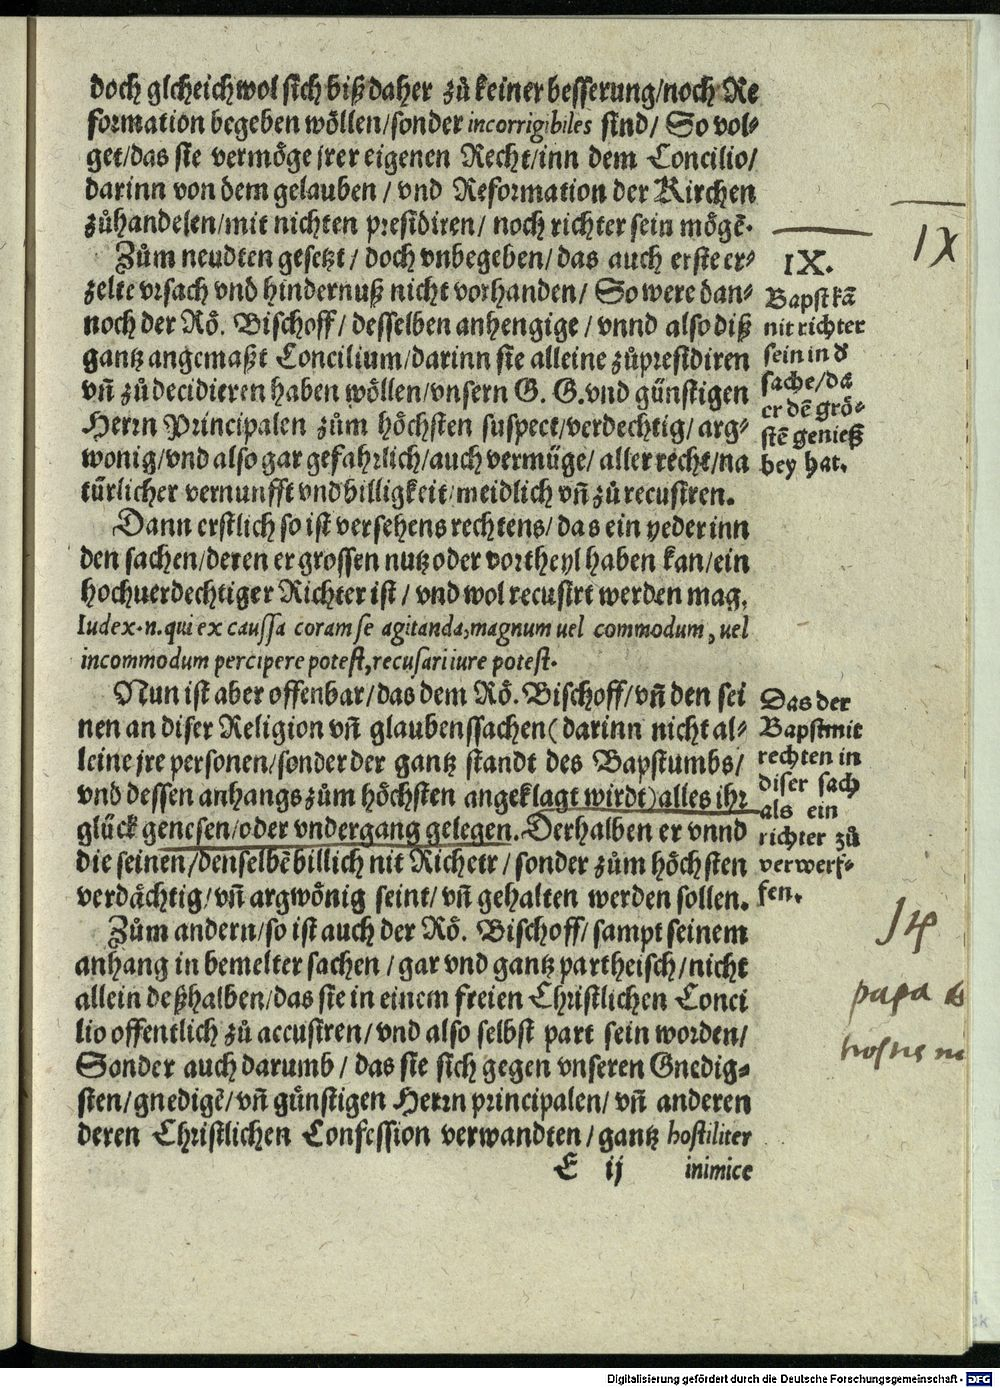 doch glcheichwol sich biß daher zů keiner besserung/noch Re
formation begeben wöllen/sonder incorrigibiles sind/ So vol⸗
get/das sie vermöge jrer eigenen Recht/inn dem Concilio/
darinn von dem gelauben/ vnd Reformation der Kirchen
zůhandelen/mit nichten presidiren/ noch richter sein mögē.
Zům neudten gesetzt/ doch vnbegeben/ das auch erste er⸗
zelte vrsach vnd hindernuß nicht vorhanden/ So were dan⸗
noch der Rö. Bischoff/ desselben anhengige/ vnnd also diß
gantz angemaßt Concilium/darinn sie alleine zůpresidiren
vn̄ zů decidieren haben wöllen/vnsern G. G. vnd günstigen
Herrn Principalen zům höchsten suspect/verdechtig/ arg⸗
wonig/vnd also gar gefahrlich/auch vermüge/ aller recht/na
türlicher vernunfft vnd billigkeit/meidlich vn̄ zů recusiren.
IX.
Bapst kā
nit richter
sein in d
sache/da
er dē grö⸗
stē genieß
bey hat.
IX
Dann erstlich so ist versehens rechtens/ das ein yeder inn
den sachen/deren er grossen nutz oder vortheyl haben kan/ein
hochuerdechtiger Richter ist/ vnd wol recusirt werden mag.
Iudex.n.qui ex caussa coram se agitanda,magnum uel commodum, uel
incommodum percipere potest,recusari iure potest.
Nun ist aber offenbar/das dem Rö. Bischoff/vn̄ den sei
nen an diser Religion vn̄ glaubenssachen(darinn nicht al⸗
leine jre personen/sonder der gantz standt des Bapstumbs/
vnd dessen anhangs zům höchsten angeklagt wirdt)alles ihr
glück genesen/oder vndergang gelegen. Derhalben er vnnd
die seinen/denselbē billich nit Richetr/ sonder zům höchsten
verdächtig/vn̄ argwönig seint/ vn̄ gehalten werden sollen.
Das der
Bapst mit
rechten in
diser sach
als ein
richter zů
verwerf⸗
fen.
Zům andern/so ist auch der Rö. Bischoff/ sampt seinem
anhang in bemelter sachen/gar vnd gantz partheisch/nicht
allein deßhalben/das sie in einem freien Christlichen Conci
lio offentlich zů accusiren/ vnd also selbst part sein worden/
Sonder auch darumb/ das sie sich gegen vnseren Gnedig⸗
sten/gnedigē/vn̄ günstigen Herrn principalen/ vn̄ anderen
deren Christlichen Confession verwandten/gantz hostiliter
papa
E ij
inimice
Digitalisierung gefördert durch die Deutsche Forschungsgemeinschaft - DFG